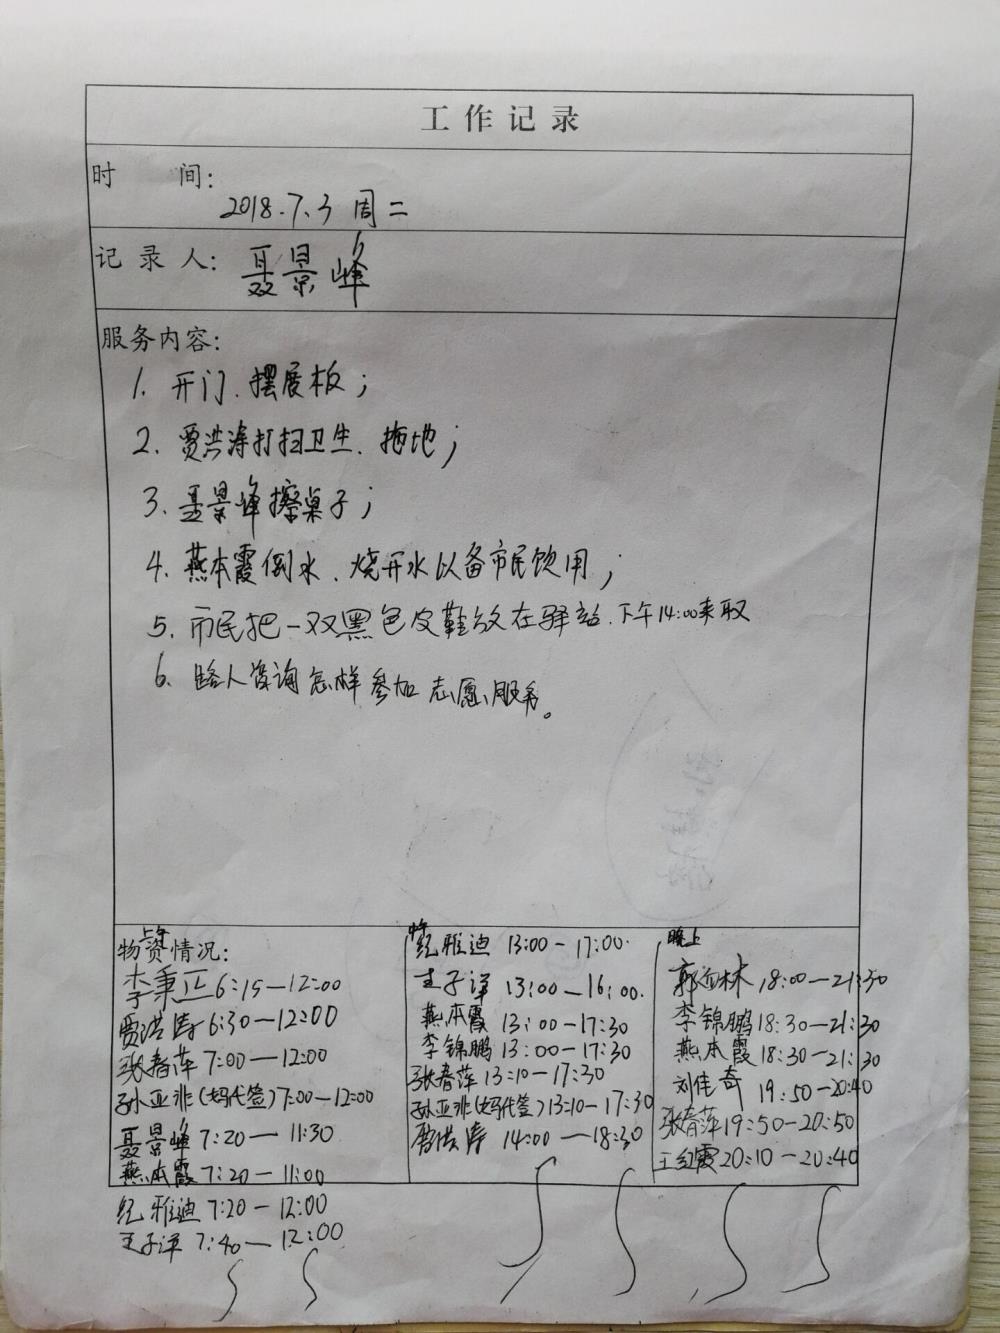 工作记录
时 间：
2018.7.3 周二
记录人：聂景峰
服务内容：
1. 开门、摆展板；
2. 贾洪涛打扫卫生、拖地；
3. 聂景峰擦桌子；
4. 燕本霞倒水、烧开水以备市民饮用；
5. 市民把一双黑色皮鞋放在驿站、下午14:00来取
6. 路人咨询怎样参加志愿服务。
上午
物资情况：
李秉正 6:15—12:00
贾洪涛 6:30—12:00
张春萍 7:00—12:00
孙亚非(妈代签) 7:00—12:00
聂景峰 7:20—11:30
燕本霞 7:20—11:00
纪雅迪 7:20—12:00
王子洋 7:40—12:00
纪雅迪 13:00—17:00
王子洋 13:00—16:00
燕本霞 13:00—17:30
李锦鹏 13:00—17:30
张春萍 13:10—17:30
孙亚非(妈代签) 13:10—17:30
贾洪涛 14:00—18:30
晚上
郭 林 18:00—21:30
李锦鹏 18:30—21:30
燕本霞 18:30—21:30
刘佳奇 19:50—20:40
张春萍 19:50—20:50
王红霞 20:10—20:40